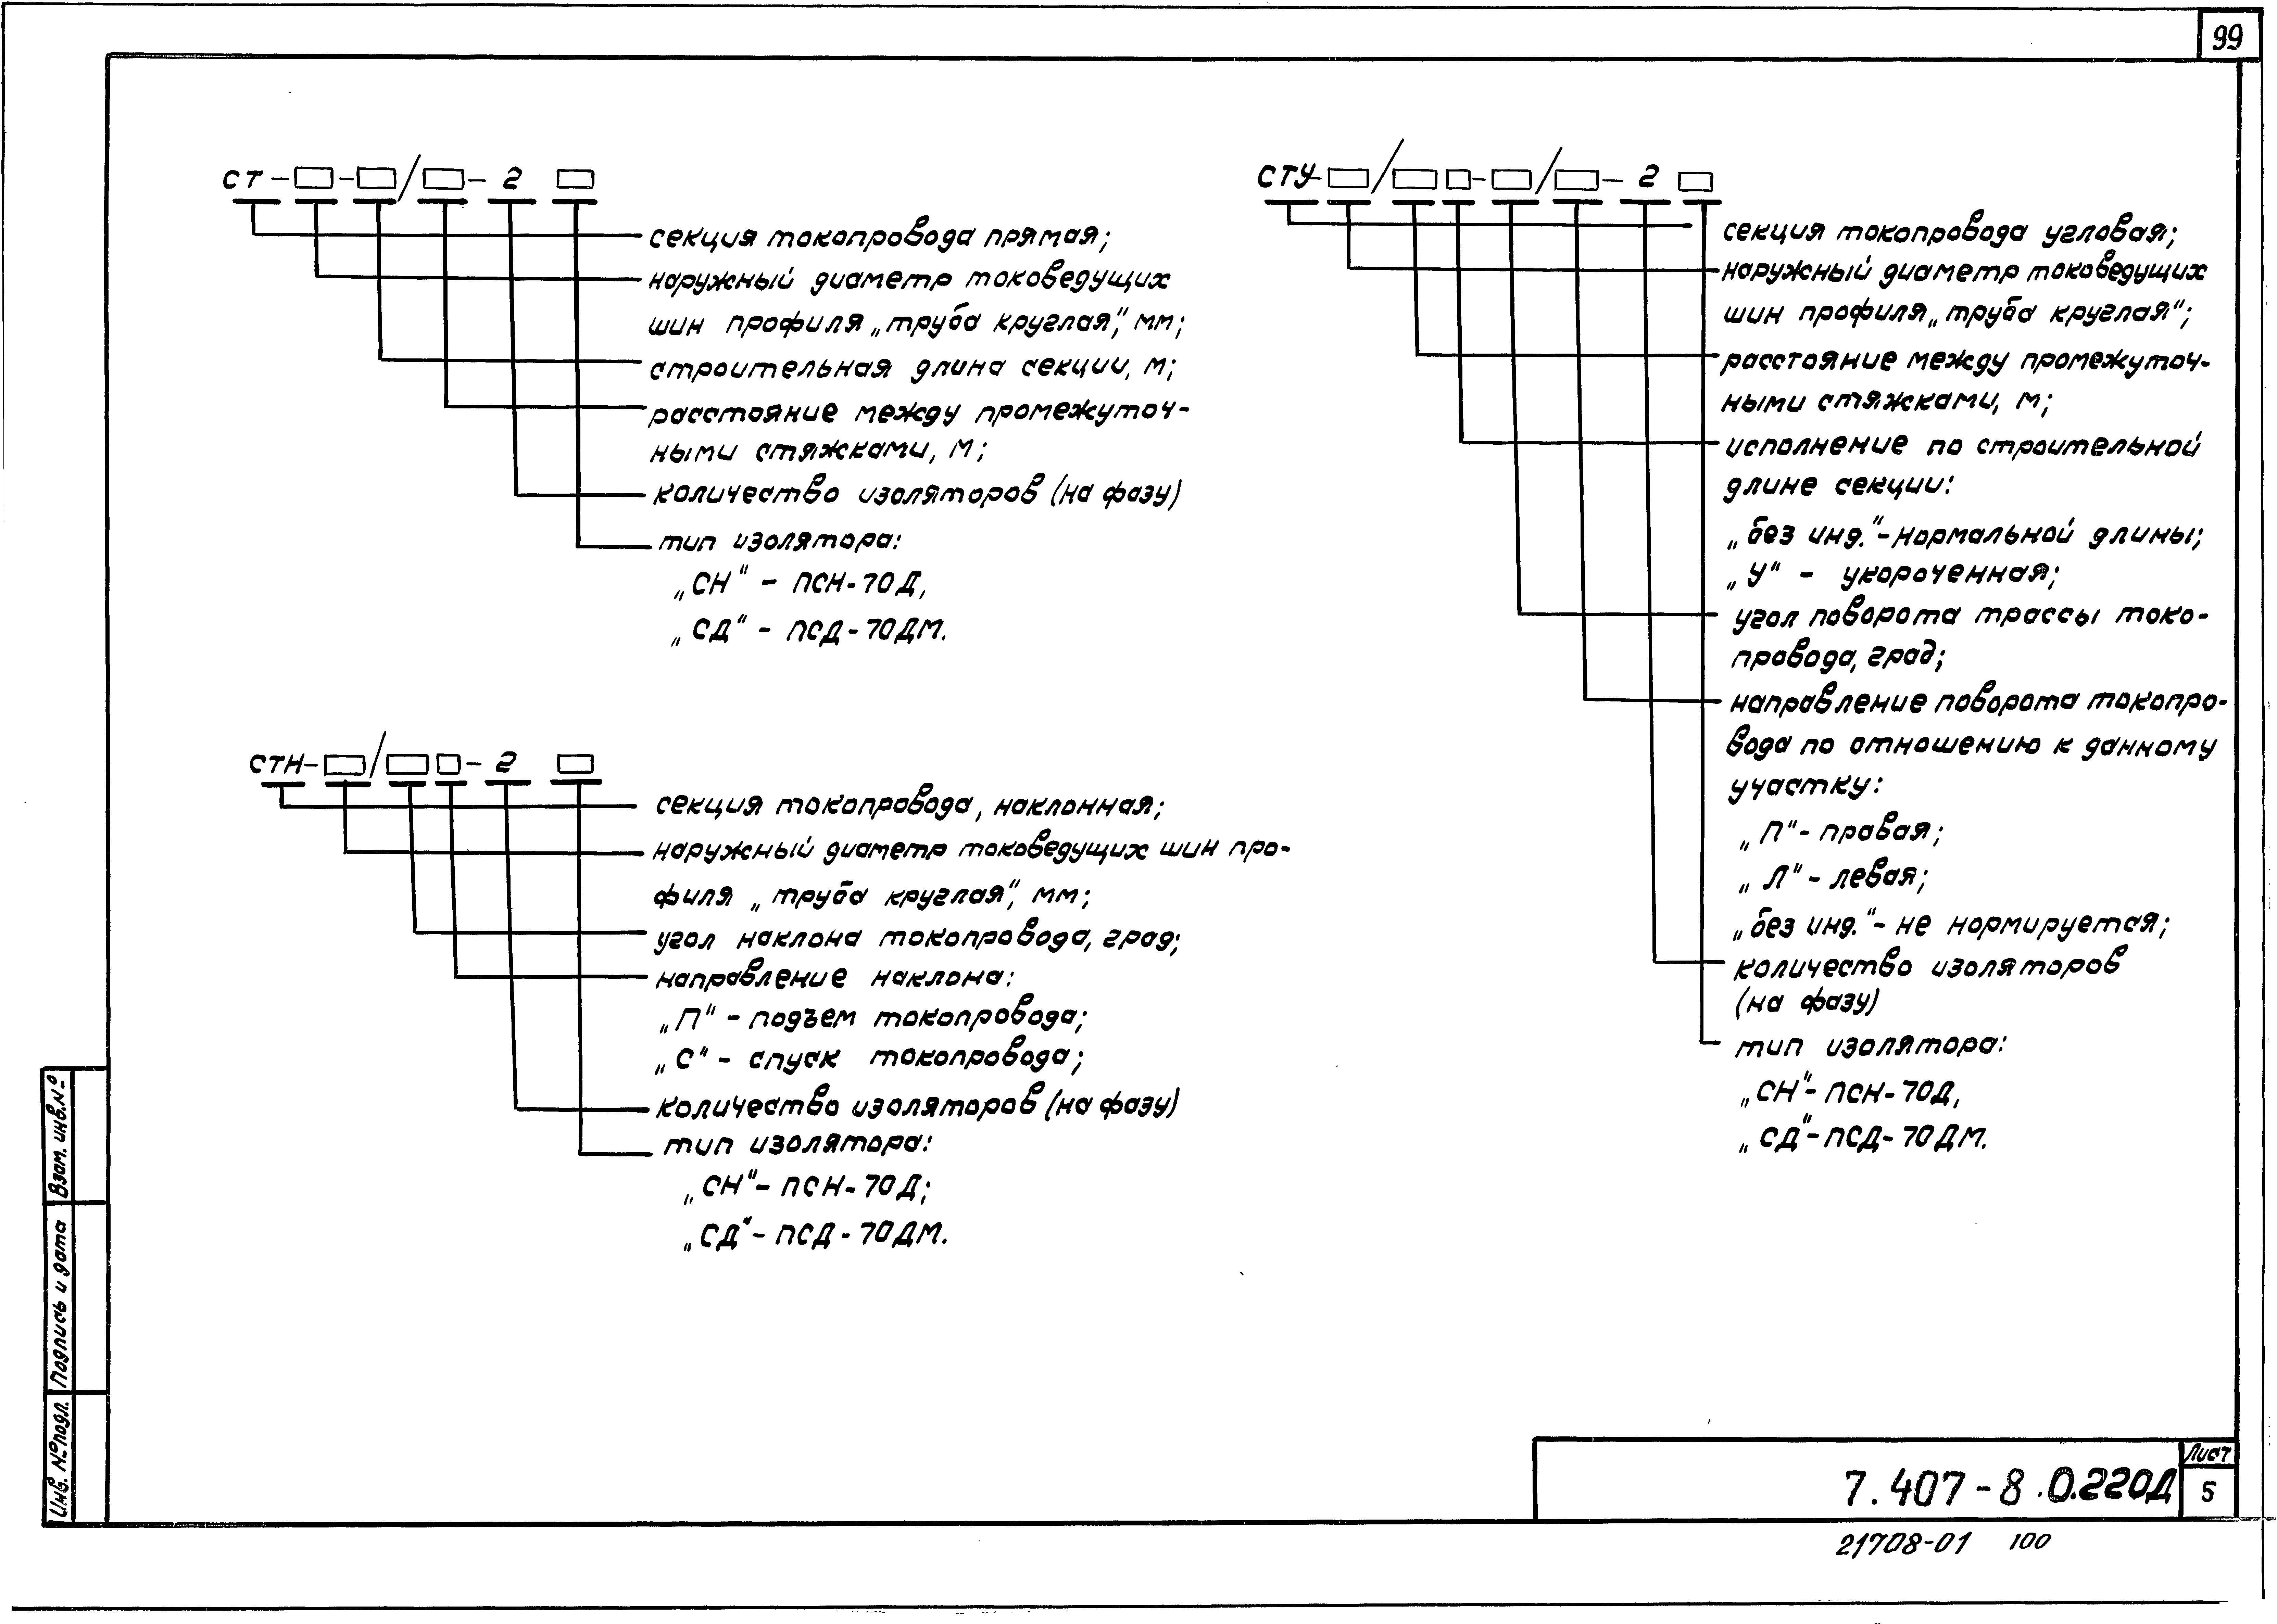 99
СТ-□-□/□-2 □
секция токопровода прямая;
наружный диаметр токоведущих
шин профиля „труба круглая“, мм;
строительная длина секции, м;
расстояние между промежуточ-
ными стяжками, м;
количество изоляторов (на фазу)
тип изолятора:
„СН“ - ПСН-70Д,
„СД“ - ПСД-70ДМ.
СТН-□/□□-2 □
секция токопровода, наклонная;
наружный диаметр токоведущих шин про-
филя „труба круглая“, мм;
угол наклона токопровода, град;
направление наклона:
„П“ - подъем токопровода;
„С“ - спуск токопровода;
количество изоляторов (на фазу)
тип изолятора:
„СН“- ПСН-70Д;
„СД“- ПСД-70ДМ.
СТУ-□/□□-□/□-2 □
секция токопровода угловая;
наружный диаметр токоведущих
шин профиля „труба круглая“;
расстояние между промежуточ-
ными стяжками, м;
исполнение по строительной
длине секции:
„без инд.“-нормальной длины;
„У“ - укороченная;
угол поворота трассы токо-
провода, град;
направление поворота токопро-
вода по отношению к данному
участку:
„П“- правая;
„Л“- левая;
„без инд.“- не нормируется;
количество изоляторов
(на фазу)
тип изолятора:
„СН“- ПСН-70Д,
„СД“- ПСД-70ДМ.
Взам. инв.№
Подпись и дата
Инв. № подл.
7.407-8.0.220Д
Лист
5
21708-01 100